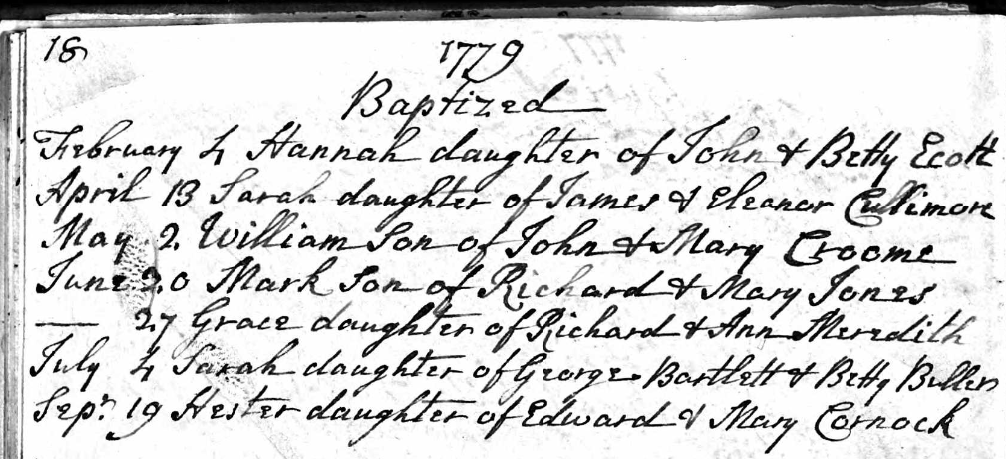 18
1779
Baptized
February 4 Hannah daughter of John & Betty Ecott
April 13 Sarah daughter of James & Eleanor Cullimore
May 2 William Son of John & Mary Croome
June 20 Mark Son of Richard & Mary Jones
—— 27 Grace daughter of Richard & Ann Meredith
July 4 Sarah daughter of George Bartlett & Betty Bullen
Sepr. 19 Hester daughter of Edward & Mary Cornock